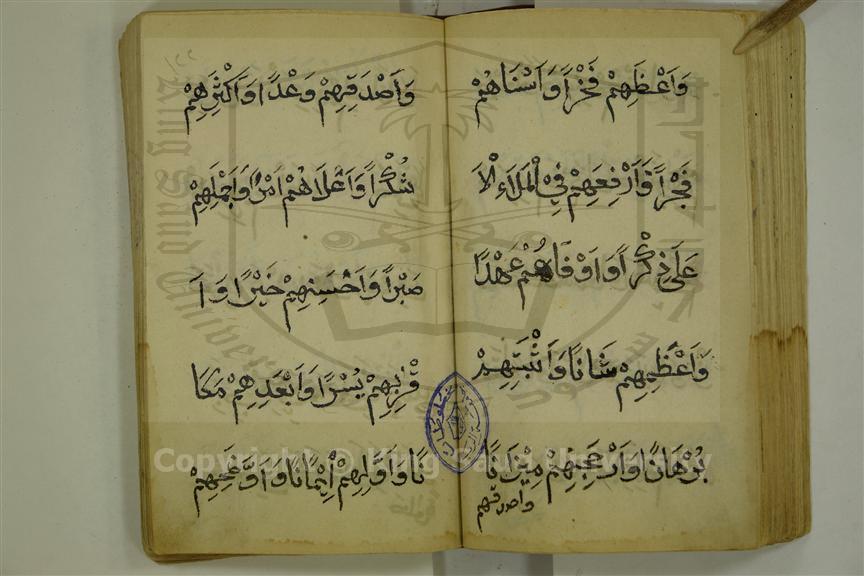 وَاَعْظَمِهِمْ فَخْرًا وَاَسْنَاهُمْ
فَجْرًا وَاَرْفَعِهِمْ فِي الْمَلَاءِ الْاَ
عَلَى ذِكْرًا وَاَوْفَاهُمْ عَهْدًا
وَاَعْظَمِهِمْ شَانًا وَاَثْبَتِهِمْ
بُرْهَانًا وَاَرْجَحِهِمْ مِيْزَانًا
واصدقهم
وَاَصْدَقِهِمْ وَعْدًا وَاَكْثَرِهِمْ
شُكْرًا وَاَعْلَاهُمْ اَمْرًا وَاَجْمَلِهِمْ
صَبْرًا وَاَحْسَنِهِمْ خَيْرًا وَاَ
قْرَبِهِمْ يُسْرًا وَاَبْعَدِهِمْ مَكَا
نًا وَاَوَّلِهِمْ اِيْمَانًا وَاَوْضَحِهِمْ
Copyright © King Saud University